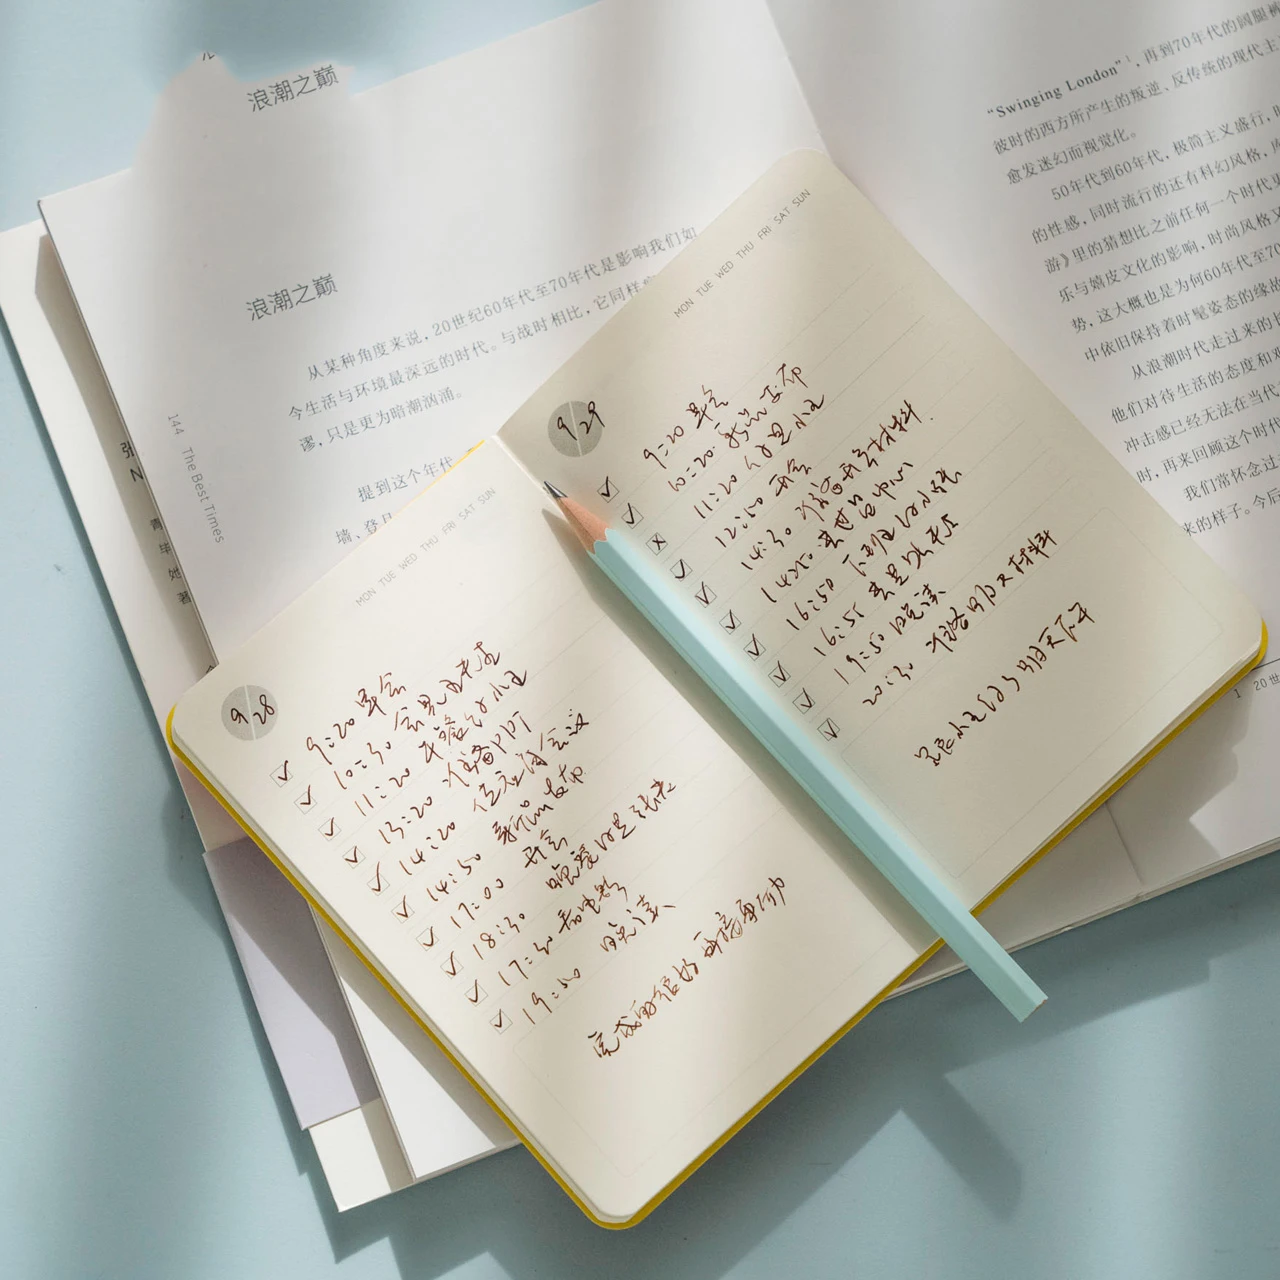 浪潮之巅
浪潮之巅
从某种角度来说，20世纪60年代至70年代是影响我们如
今生活与环境最深远的时代。与战时相比，它同样
谬，只是更为暗潮汹涌。
提到这个年代
墙、登月
144 The Best Times
张
N
青
毕
她
著
"Swinging London"¹，再到70年代的阔腿裤
彼时的西方所产生的叛逆、反传统的现代主
愈发迷幻而视觉化。
50年代到60年代，极简主义盛行，
的性感，同时流行的还有科幻风格，库
游》里的猜想比之前任何一个时代更
乐与嬉皮文化的影响，时尚风格又
势，这大概也是为何60年代至70
中依旧保持着时髦姿态的缘故
从浪潮时代走过来的
他们对待生活的态度和
冲击感已经无法在当代
时，再来回顾这个时代
我们常怀念过
来的样子。今后
1 20世
MON TUE WED THU FRI SAT SUN
9 28
9:20 早会
10:30
11:20 午餐
13:20 准备PPT
14:20 会议
14:50 新品发布
17:00 开会
18:30 晚餐
17:30 看电影
19:50 阅读
完成的很好 再接再厉
MON TUE WED THU FRI SAT SUN
9 29
9:20 早会
10:20 新品发布
11:20
12:50 开会
14:30 准备开会材料
14:50
16:50
16:55
19:50 阅读
20:30 准备明天材料
明天下午